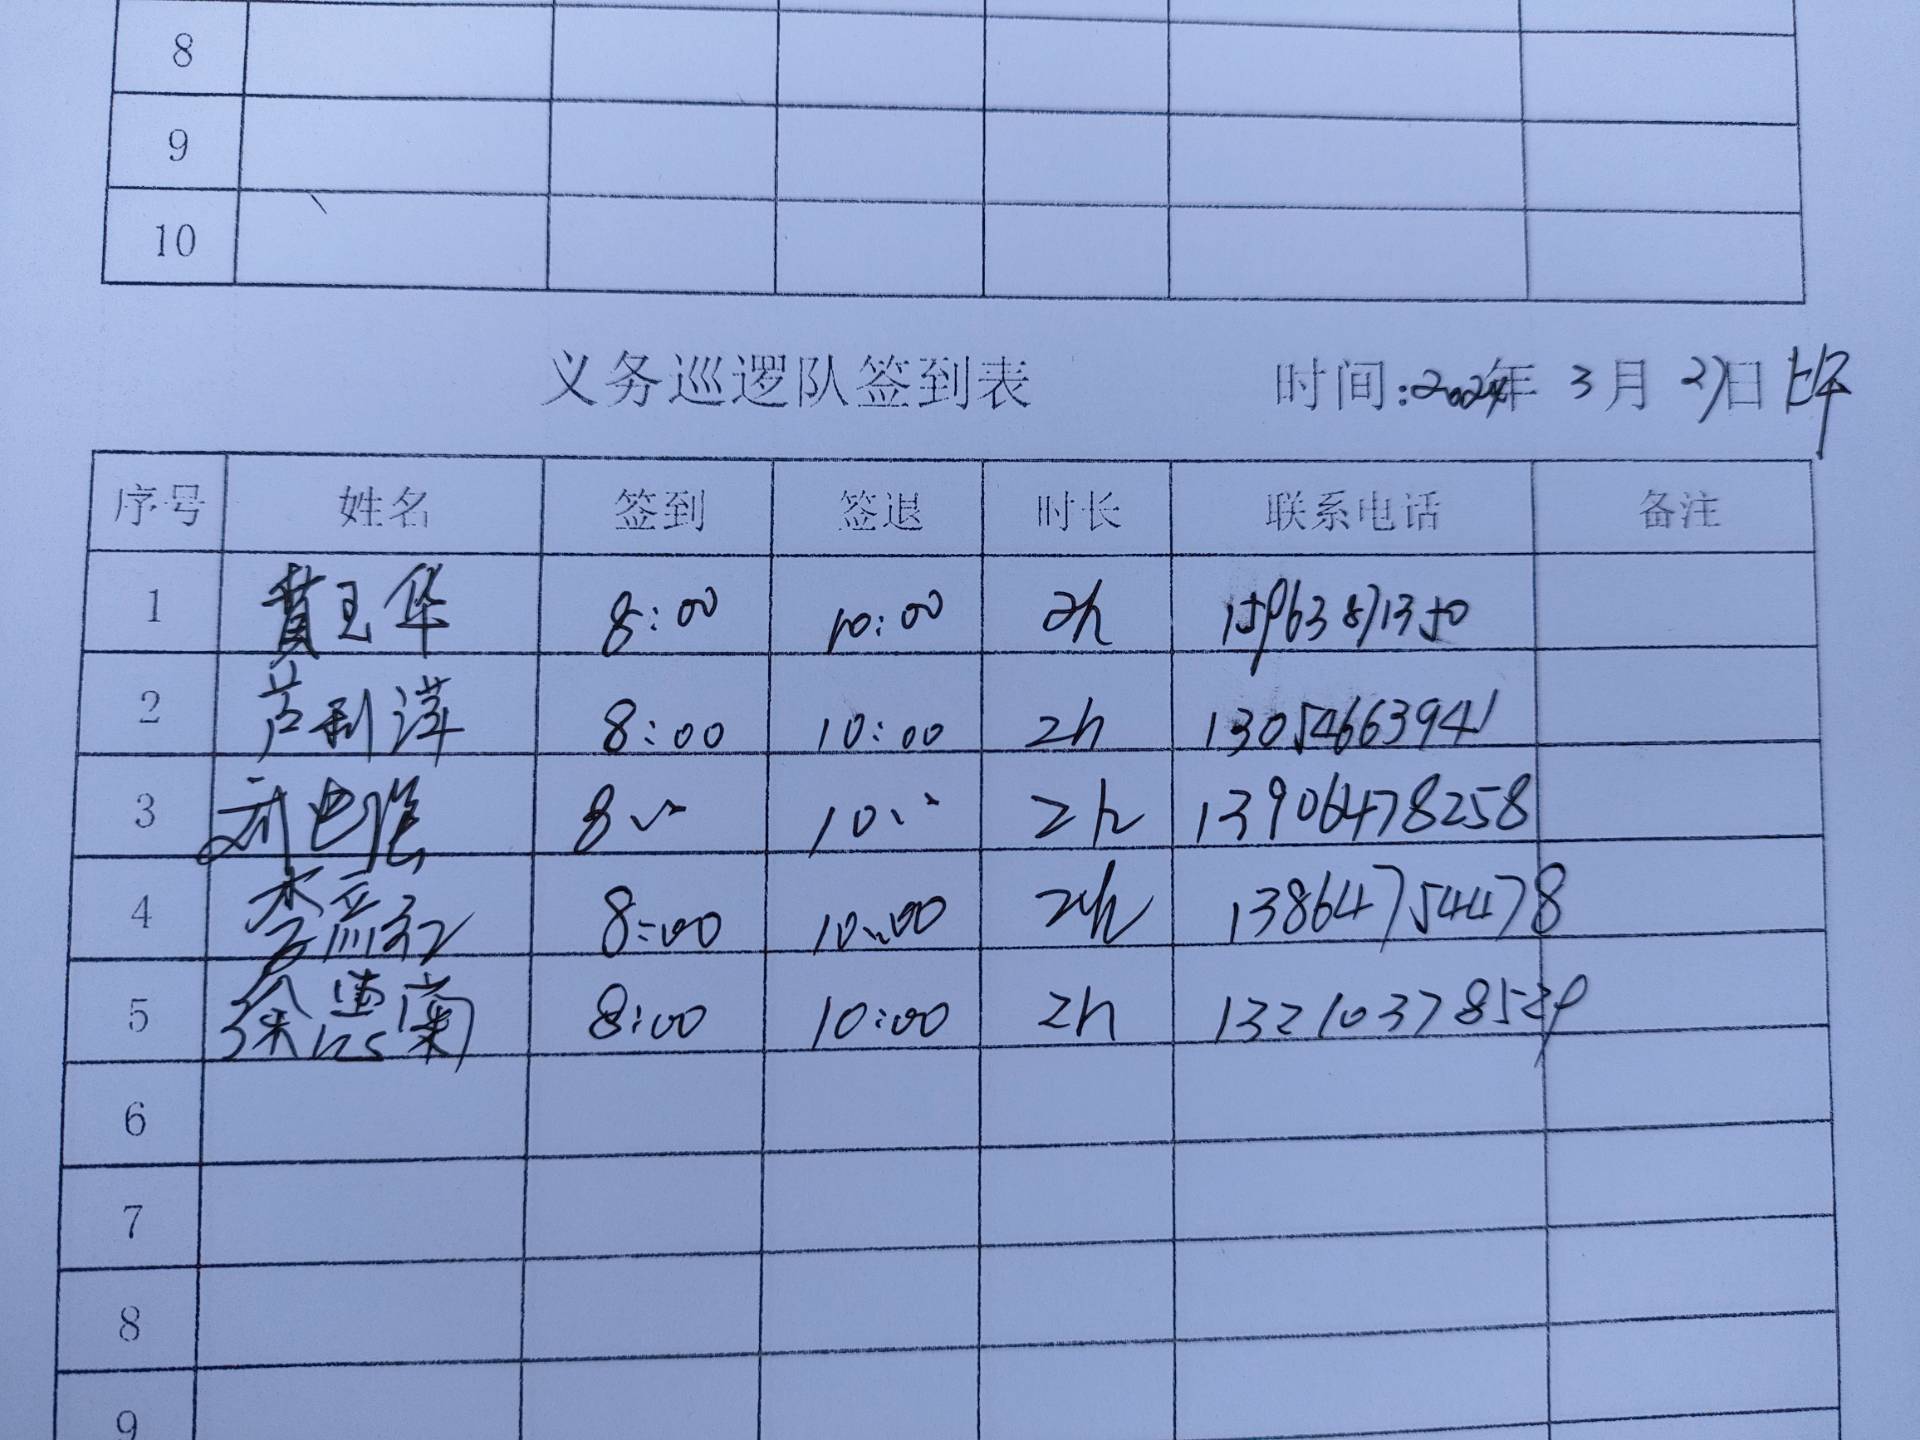 8
9
10
义务巡逻队签到表 时间:2024年 3月 27日 上午
序号 姓名 签到 签退 时长 联系电话 备注
1 黄玉华 8:00 10:00 2h 15963871350
2 芦利萍 8:00 10:00 2h 13054663941
3 8:00 10:00 2h 13906478258
4 李 红 8:00 10:00 2h 13864754478
5 徐惠兰 8:00 10:00 2h 13210378529
6
7
8
9